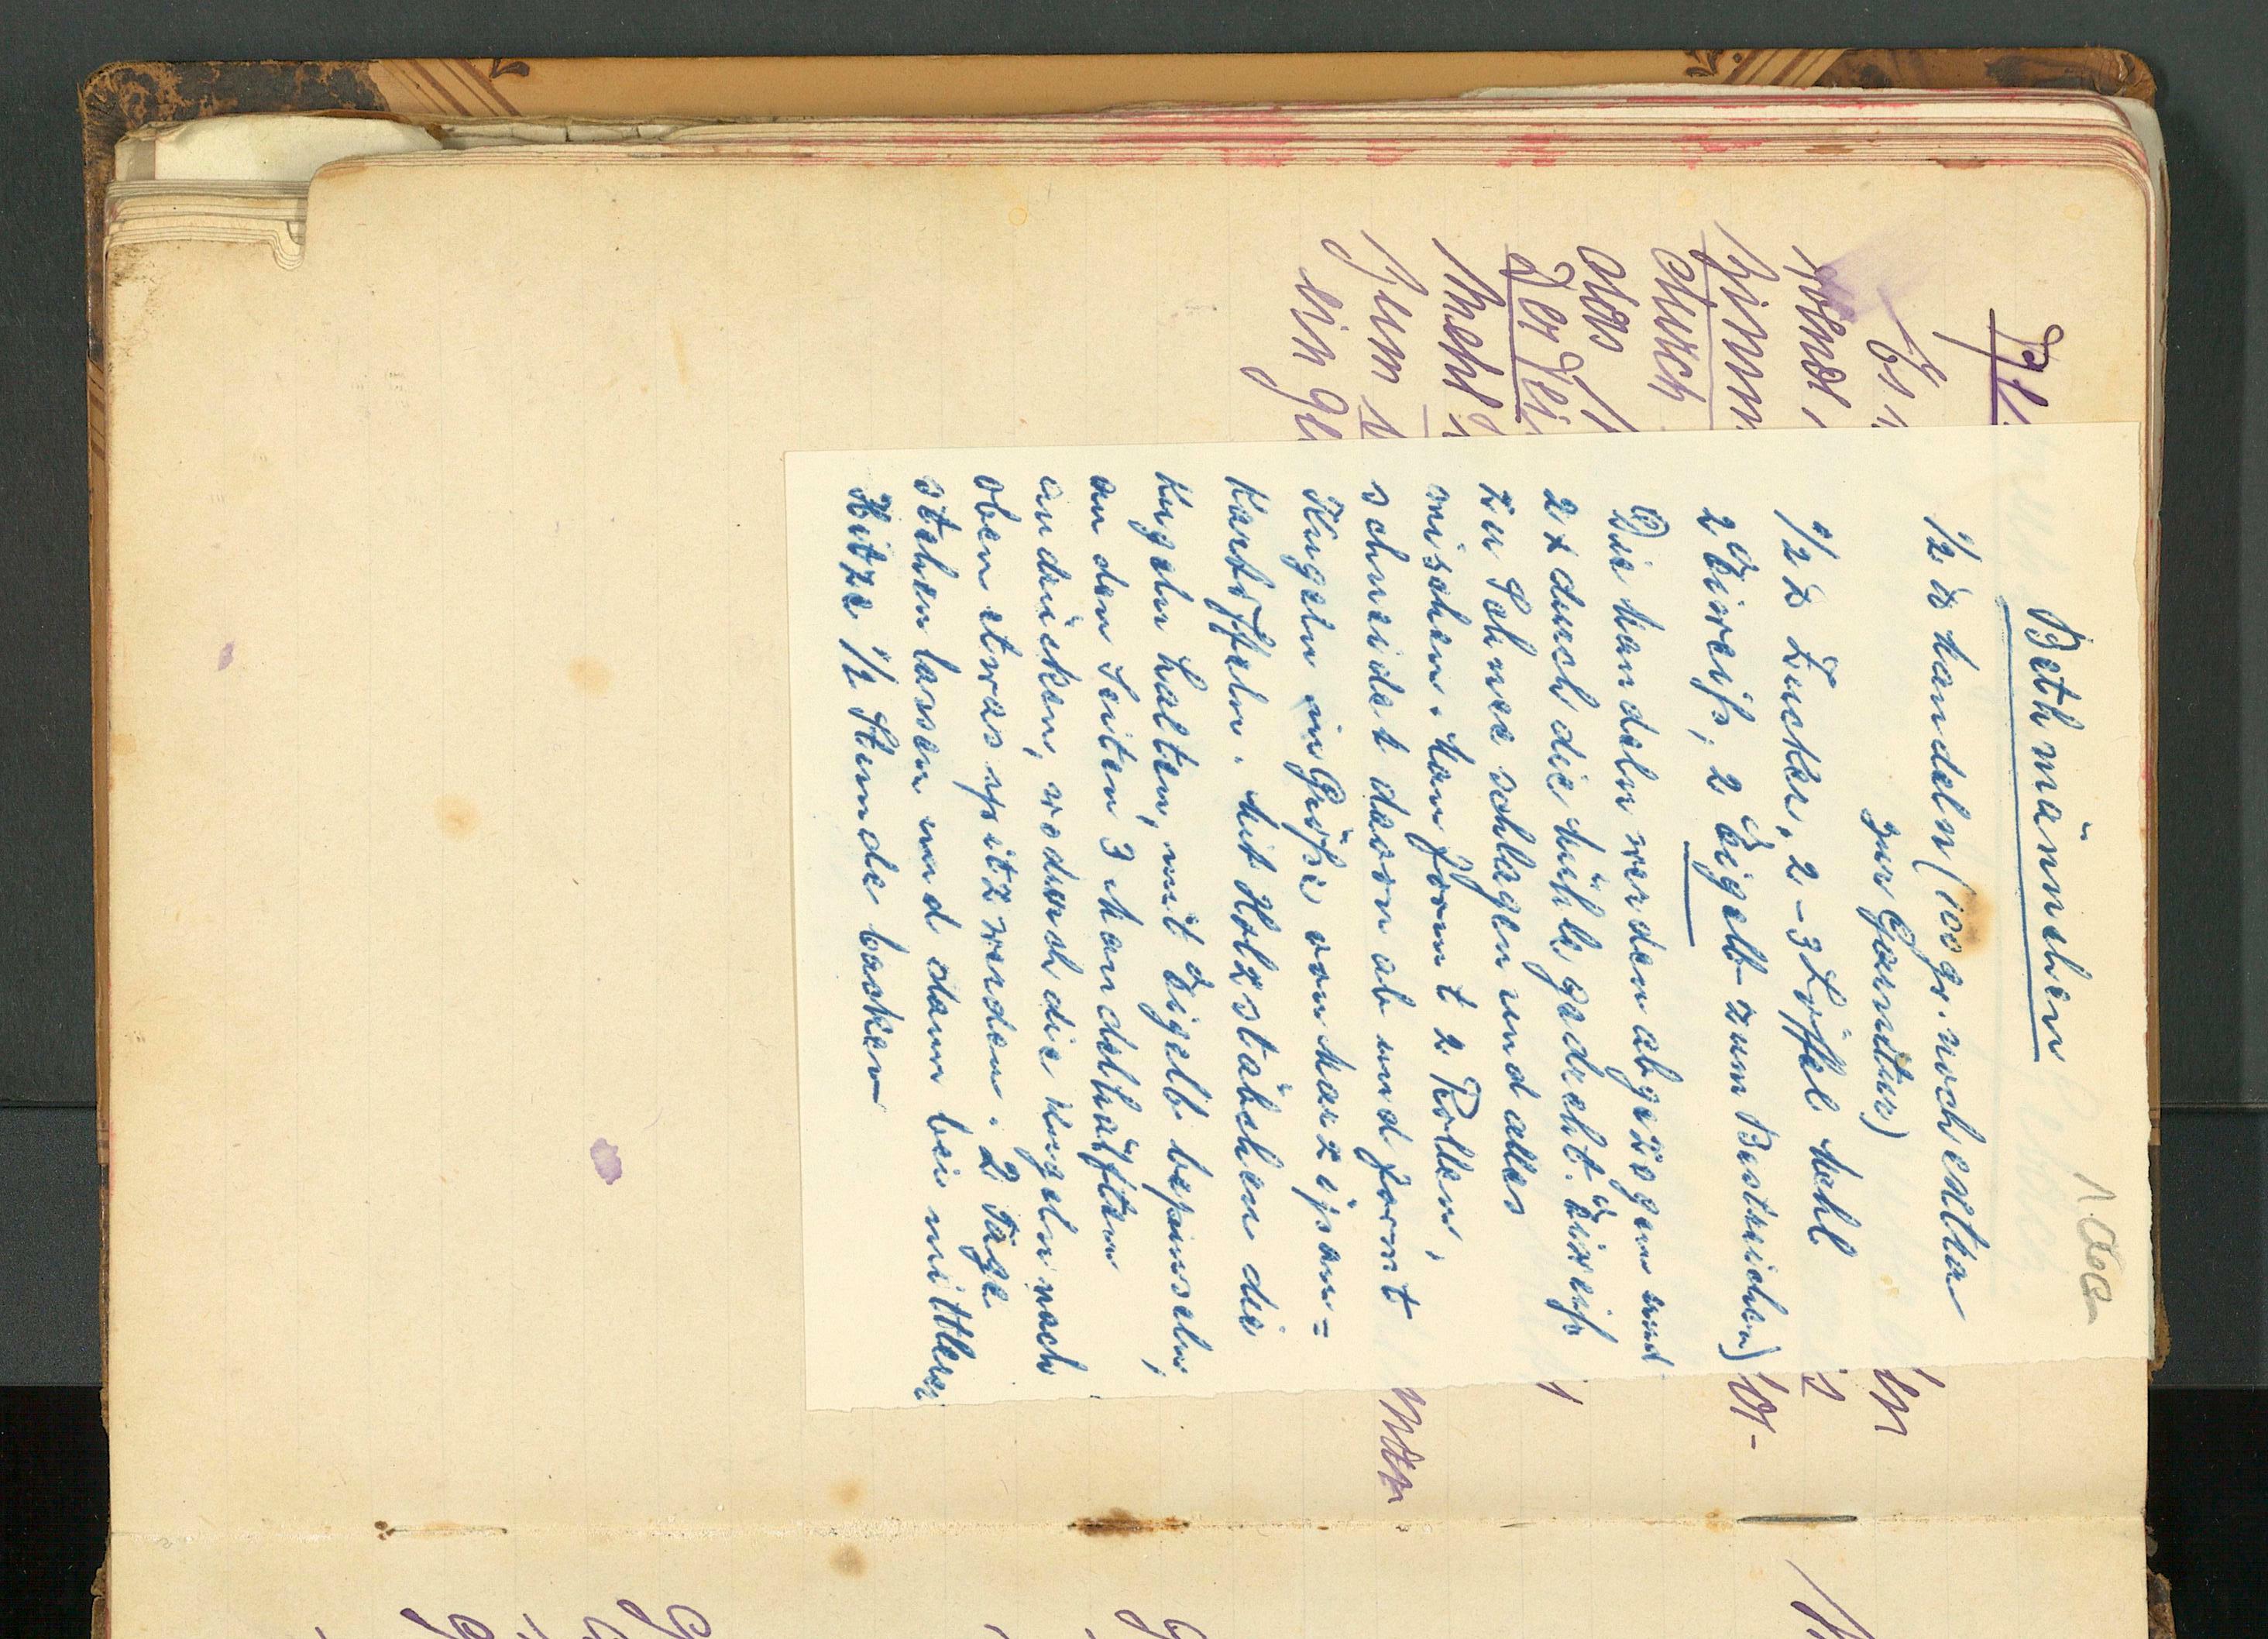 Bethmännchen
½ ℔ Mandeln (100 gr. noch extra
zur Garnitur)
½ ℔ Zucker, 2-3 Löffel Mehl
2 Eiweiß, 2 Eigelb zum Bestreichen)
Die Mandeln werden abgezogen und
2 x durch die Mühle gedreht. Eiweiß
zu Schnee schlagen und alles
mischen. Man formt 2 Rollen,
schneidet davon ab und formt
Kugeln in Größe von Marzipan=
kartoffeln. Mit Holzstäbchen die
Kugeln halten, mit Eigelb bepinseln,
an den Seiten 3 Mandelhälften
andrücken, wodurch die Kugeln nach
oben etwas spitz werden. 2 Tage
stehen lassen und dann bei mittlerer
Hitze ½ Stunde backen
durch
das
Mehl
zum
man